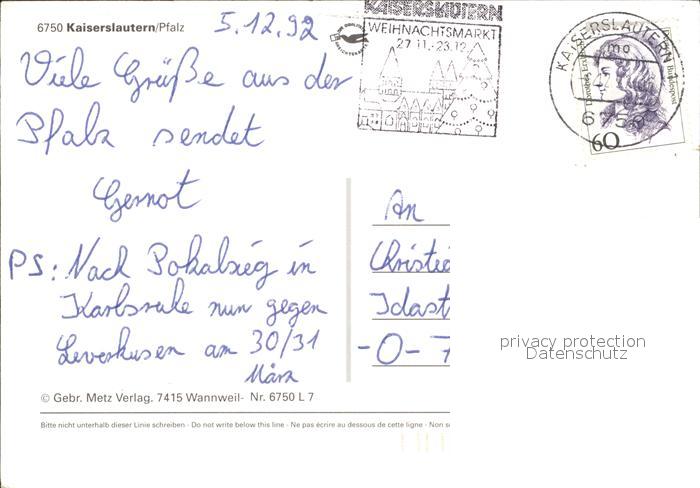 6750 Kaiserslautern/Pfalz
5.12.92
KAISERSLAUTERN
WEIHNACHTSMARKT
27.11.-23.12.
KAISERSLAUTERN 1
mo
675
60
Viele Grüße aus der
Pfalz sendet
Gernot
PS: Nach Pokalsieg in
Karlsruhe nun gegen
Leverkusen am 30/31
März
An
Christi
Idast
-O-7
privacy protection
Datenschutz
© Gebr. Metz Verlag. 7415 Wannweil- Nr. 6750 L 7
Bitte nicht unterhalb dieser Linie schreiben - Do not write below this line - Ne pas écrire au dessous de cette ligne - Non s